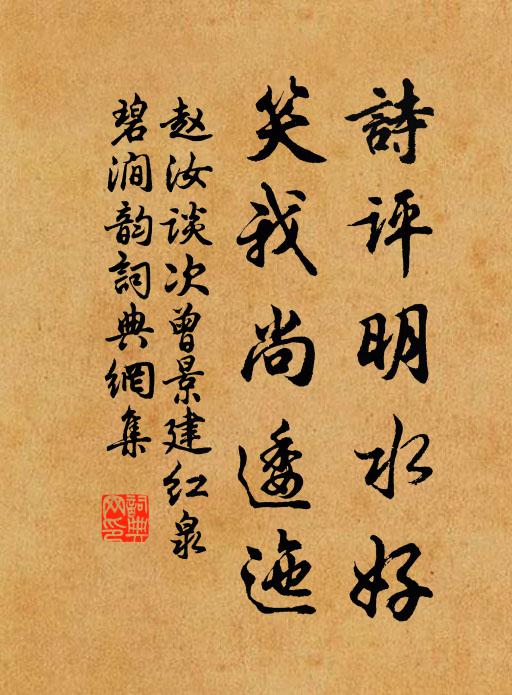 詩评明水好
笑我尚逶迤
赵汝谈次曾景建红泉
碧涧韵詞典網集
詞典
网印